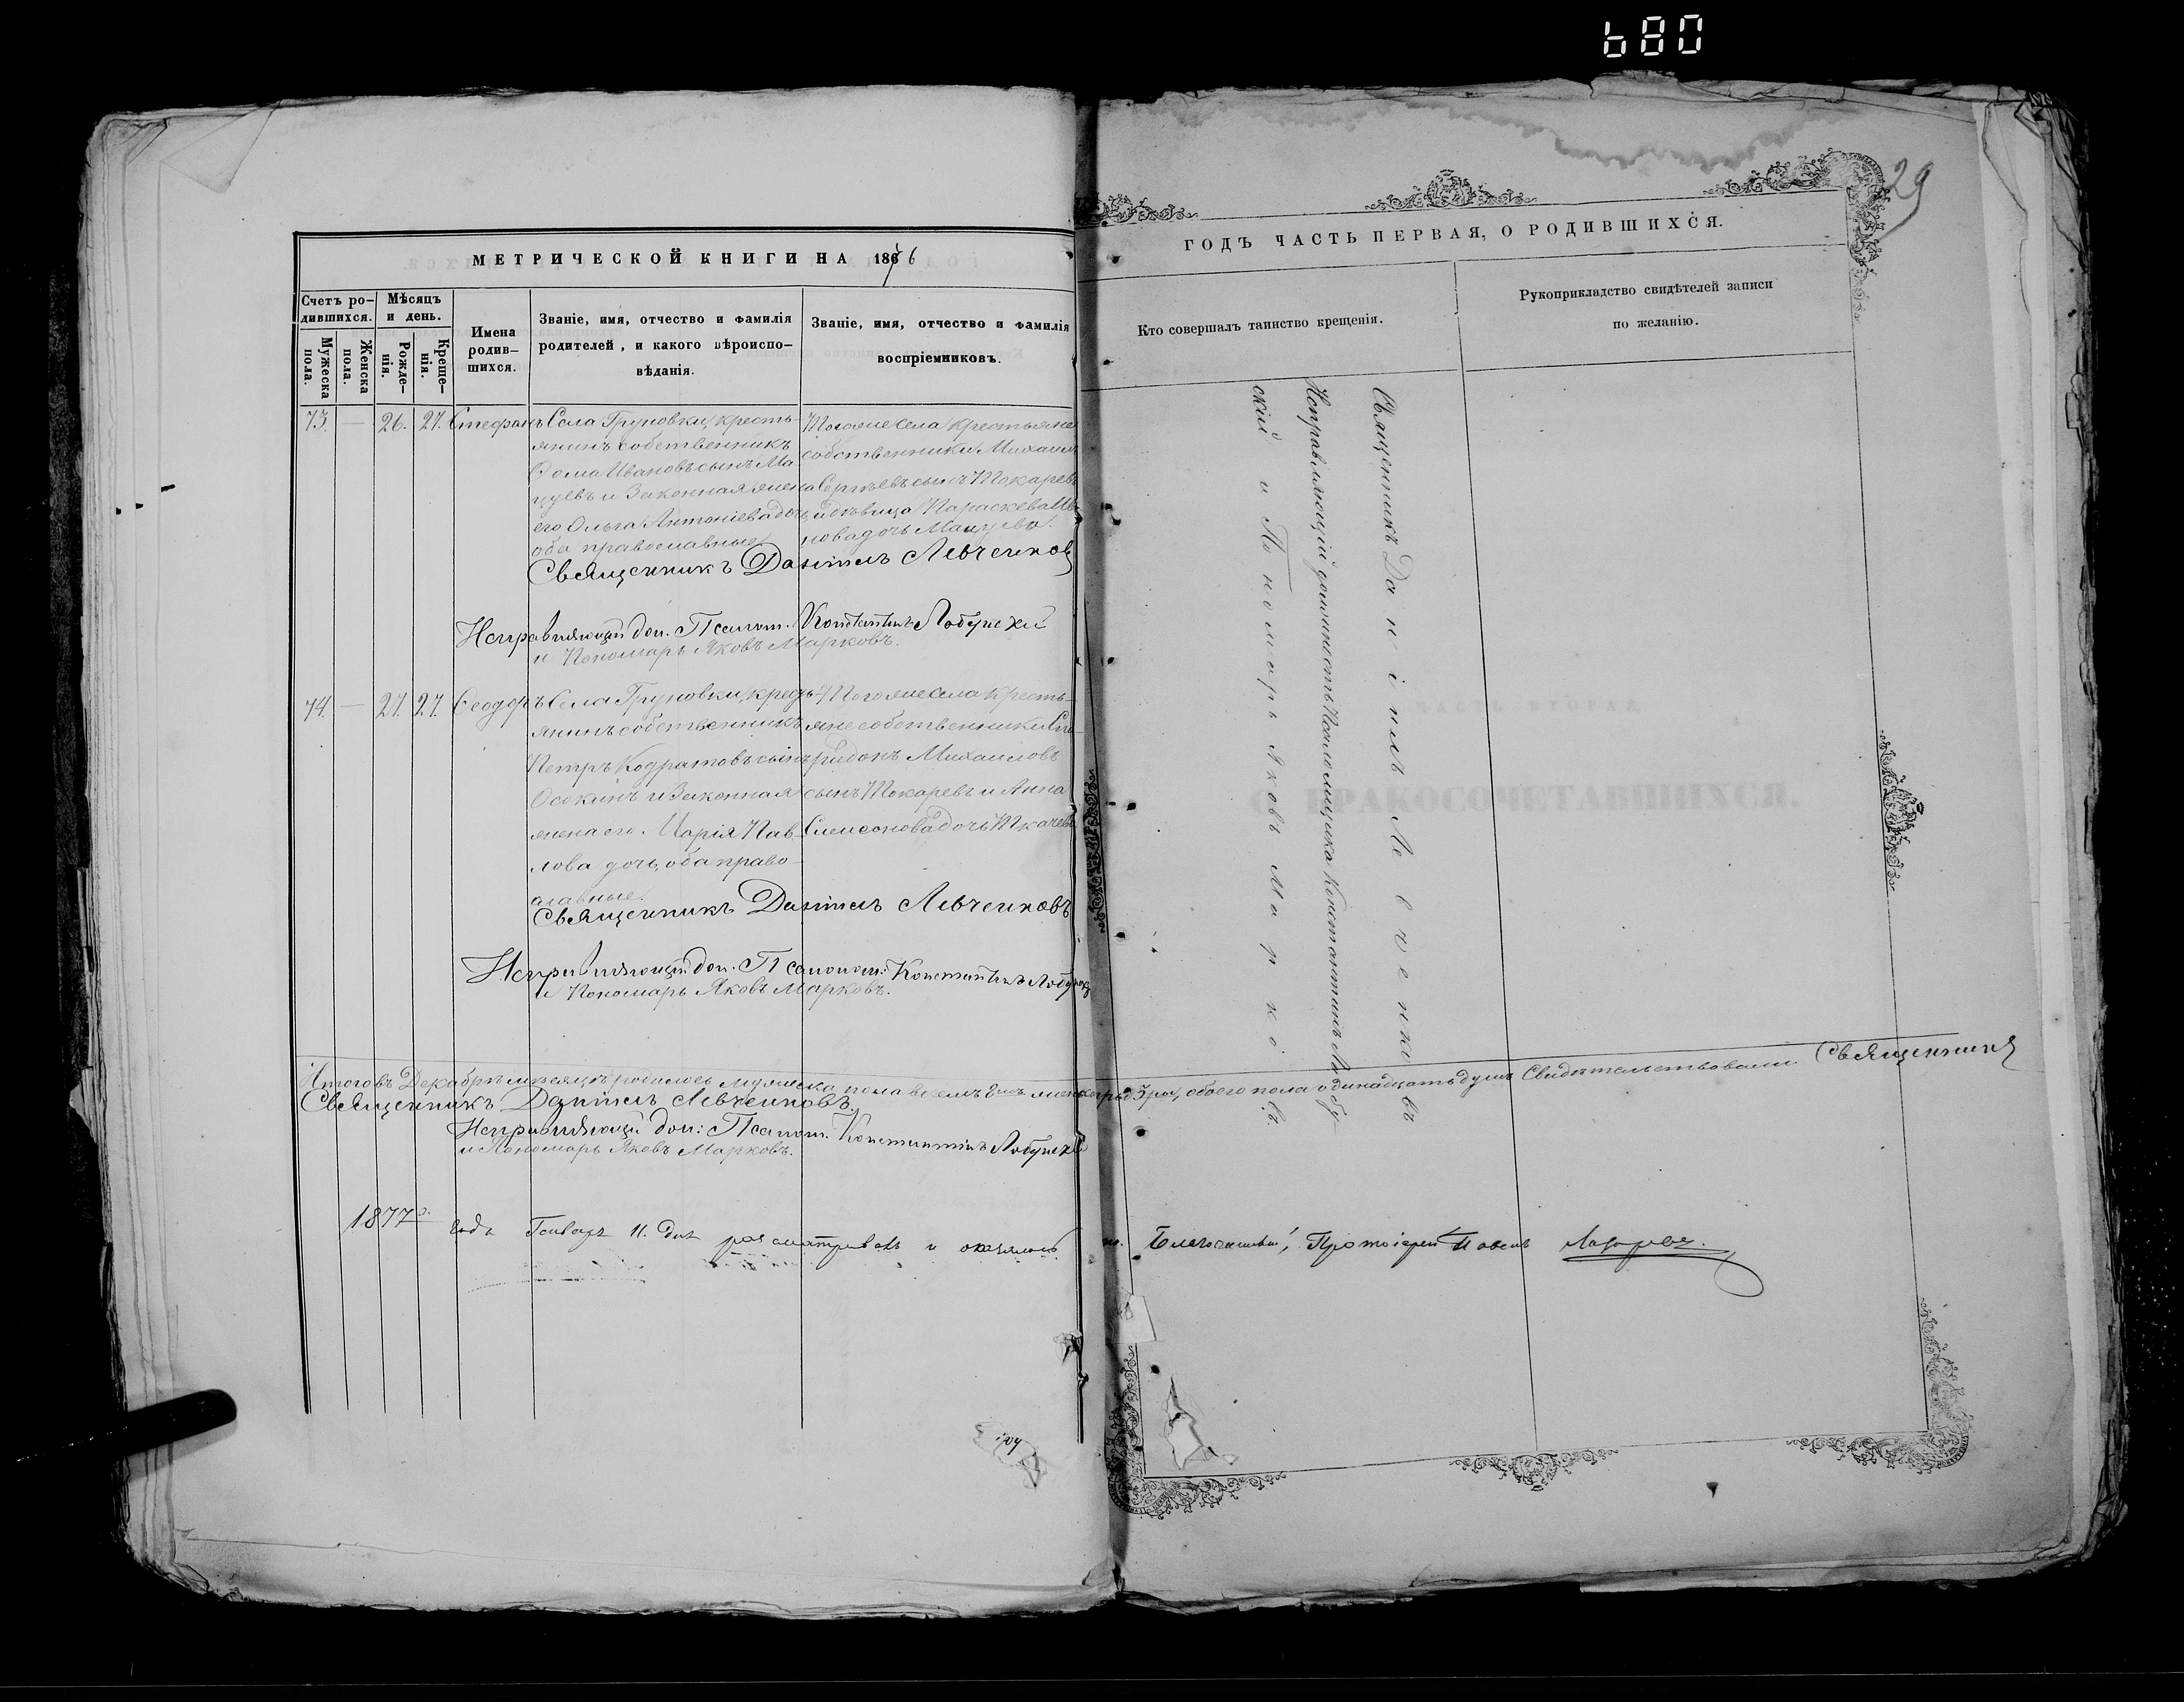 680
29
МЕТРИЧЕСКОЙ КНИГИ НА 1876
ГОДЪ ЧАСТЬ ПЕРВАЯ, О РОДИВШИХСЯ.
Счетъ ро-
дившихся.
Мужеска
пола.
Женска
пола.
Мѣсяцъ
и день.
Рожде-
нія.
Креще-
нія.
Имена
родив-
шихся.
Званіе, имя, отчество и фамилія
родителей, и какого вѣроиспо-
вѣданія.
Званіе, имя, отчество и фамилія
воспріемниковъ.
Кто совершалъ таинство крещенія.
Рукоприкладство свидѣтелей записи
по желанію.
73. — 26. 27. Стефанъ
Села Груновки, кресть-
янинъ собственникъ
Ѳома Ивановъ сынъ Ма
цуевъ и Законная жена
его Ольга Антоніева дочь,
оба православные
Тогоже Села Крестьяне
собственники Михаилъ
Сергѣевъ сынъ Токаревъ
и дѣвица Параскева Ива
нова дочь Мацуева.
Священникъ Даніилъ Левченковъ
Исправляющій дол. Псалом. Константинъ Лобунскій
и Пономарь Яковъ Марковъ.
74. — 27. 27. Ѳеодоръ
Села Груновки, кресть-
янинъ собственникъ
Петръ Кодратовъ сынъ
Осокинъ и Законная
жена его Марія Пав-
лова дочь, оба право-
славные.
Тогоже Села Кресть-
яне собственники Спи-
ридонъ Михаиловъ
сынъ Токаревъ и Анна
Симеонова дочь Ткачева
Священникъ Даніилъ Левченковъ
Исправляющій дол. Псалом. Константинъ Лобунскій
и Пономарь Яковъ Марковъ.
Священникъ Даніилъ Левченковъ
Исправляющій должность Псаломщика Константинъ Лобу
скій и Пономарь Яковъ Марковъ.
Итого въ Декабрѣ мѣсяцѣ родилось мужеска пола восемь женска три, обоего пола одинадцать душъ Свидѣтельствовали Священникъ
Священникъ Даніилъ Левченковъ.
Исправляющій дол: Псалом. Константинъ Лобунскій
и Пономарь Яковъ Марковъ.
1877 года Генваря 11. дня разсматривалъ и оказалось
Благочинный, Протоіерей Павелъ Лазаревъ.
ЧАСТЬ ВТОРАЯ
О БРАКОСОЧЕТАВШИХСЯ.